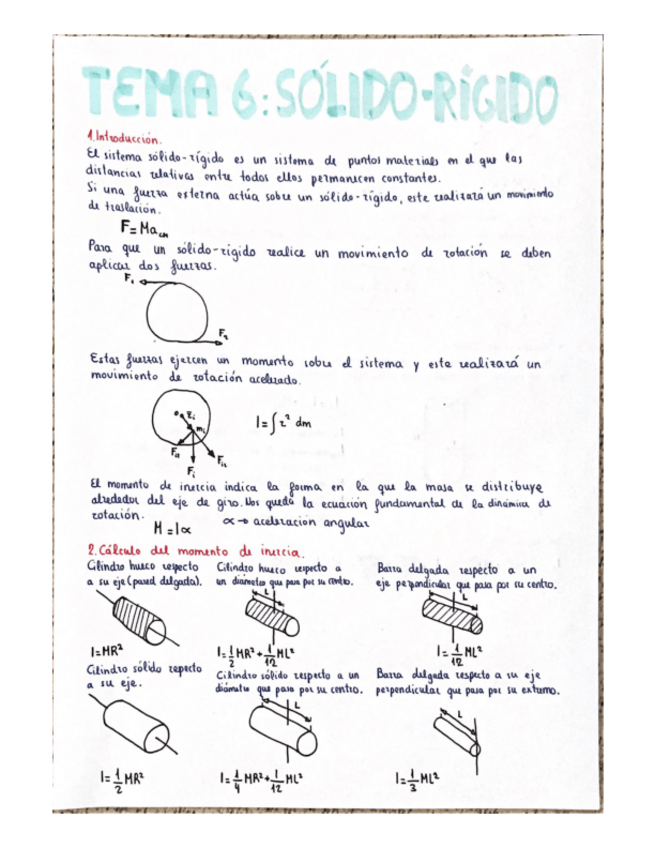 TEMA 6: SÓLIDO-RÍGIDO
1. Introducción.
El sistema sólido-rígido es un sistema de puntos materiales en el que las
distancias relativas entre todos ellos permanecen constantes.
Si una fuerza externa actúa sobre un sólido-rígido, este realizará un movimiento
de traslación.
F = Ma_CM
Para que un sólido-rígido realice un movimiento de rotación se deben
aplicar dos fuerzas.
F₁
F₂
Estas fuerzas ejercen un momento sobre el sistema y este realizará un
movimiento de rotación acelerado.
o r_i m_i
I = ∫r² dm
F_i
El momento de inercia indica la forma en la que la masa se distribuye
alrededor del eje de giro. Nos queda la ecuación fundamental de la dinámica de
rotación.
M = Iα α → aceleración angular
2. Cálculo del momento de inercia.
Cilindro hueco respecto
a su eje (pared delgada).
I = MR²
Cilindro hueco respecto a
un diámetro que pasa por su centro.
L
I = 1/2 MR² + 1/12 ML²
Barra delgada respecto a un
eje perpendicular que pasa por su centro.
L
I = 1/12 ML²
Cilindro sólido respecto
a su eje.
I = 1/2 MR²
Cilindro sólido respecto a un
diámetro que pasa por su centro.
L
I = 1/4 MR² + 1/12 ML²
Barra delgada respecto a su eje
perpendicular que pasa por su extremo.
L
I = 1/3 ML²